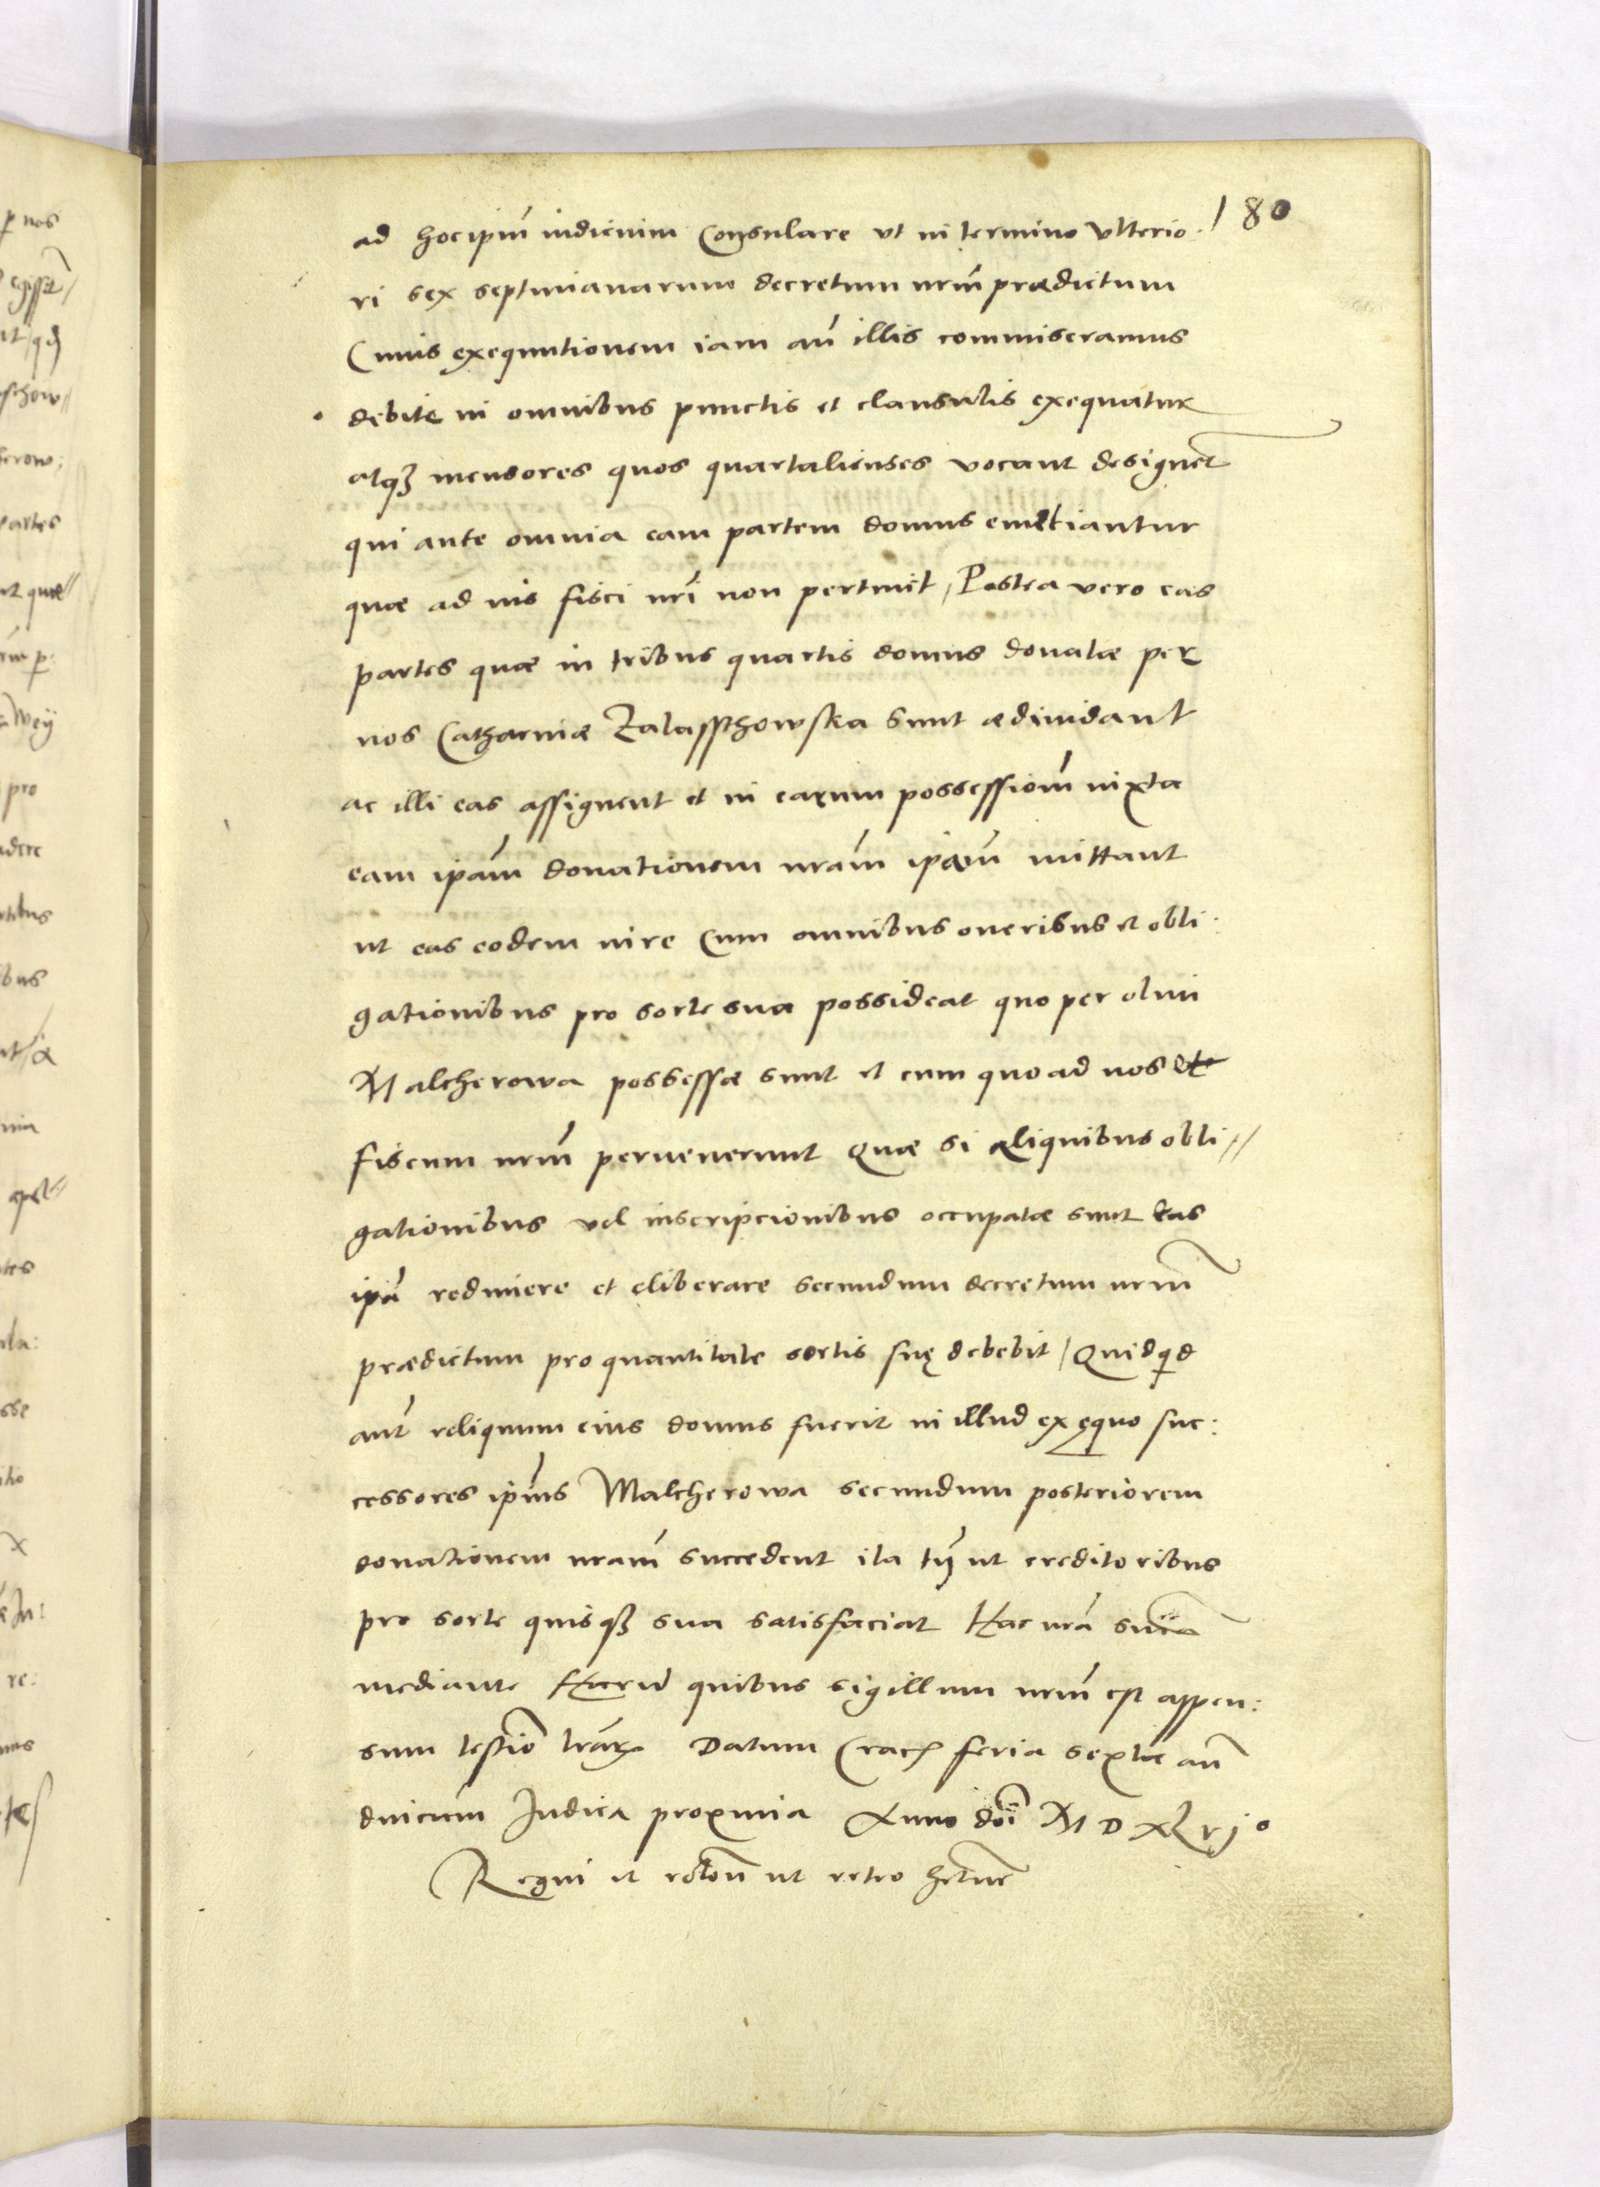 180
ad hoc ipm̃ iudicium Consulare ut in termino ulterio.
ri sex septimanarum decretum nrm̃ prædictum
Cuius exequutionem iam añ illis commiseramus
debite in omnibus punctis et clausulis exequatur
atqꝫ mensores quos quartalienses vocant designet
qui ante omnia eam partem domus emetiantur
quæ ad ius fisci nrĩ non pertinet / Postea vero eas
partes quæ in tribus quartis domus donatæ per
nos Catharinæ Zalasschowska sunt ædiuidant
ac illi eas assignent et in earum possessionẽ iuxta
eam ipam̃ donationem nram̃ ipam̃ mittant
ut eas eodem iure Cum omnibus oneribus et obli:
gationibus pro sorte sua possideat quo per olim
Malcherowa possessæ sunt et cum quo ad nos et
fiscum nrm̃ peruenerunt Quæ si aliquibus obli//
gationibus vel inscripcionibus occupatæ sunt eas
ipã redimere et eliberare secundum decretum nrm̃
prædictum pro quantitate sortis suę debebit / Quidqid
aut̃ reliquum eius domus fuerit in illud ex ęquo suc:
cessores ipĩus Malcherowa secundum posteriorem
donationem nram̃ succedent ita tñ ut creditoribus
pro sorte quisqꝫ sua satisfaciat Hac nrã
mediante Harũ quibus sigillum nrm̃ est appen:
sum testĩo lrãrꝫ Datum Crac feria sexta añ
dnicum Judica proxima Anno doĩ M D XLvjo
Reqni et ut retro